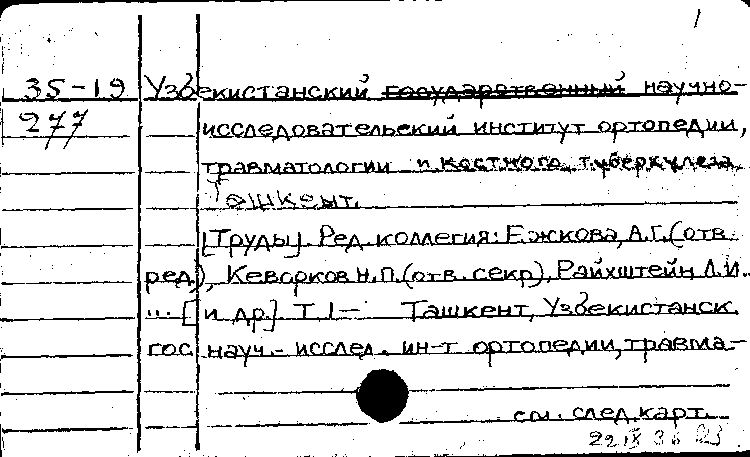 1
35-19 Узбекистанский государственный научно-
277 исследовательский институт ортопедии,
травматологии и костного туберкулеза.
Ташкент.
[Труды]. Ред. коллегия: Ежкова, А.Г. (отв.
ред.), Кеворков Н.П. (отв. секр), Райхштейн Л.И.
... [и др.]. Т. 1- Ташкент, Узбекистанск.
гос. науч.- исслед. ин-т ортопедии, травма-
см. след. карт.